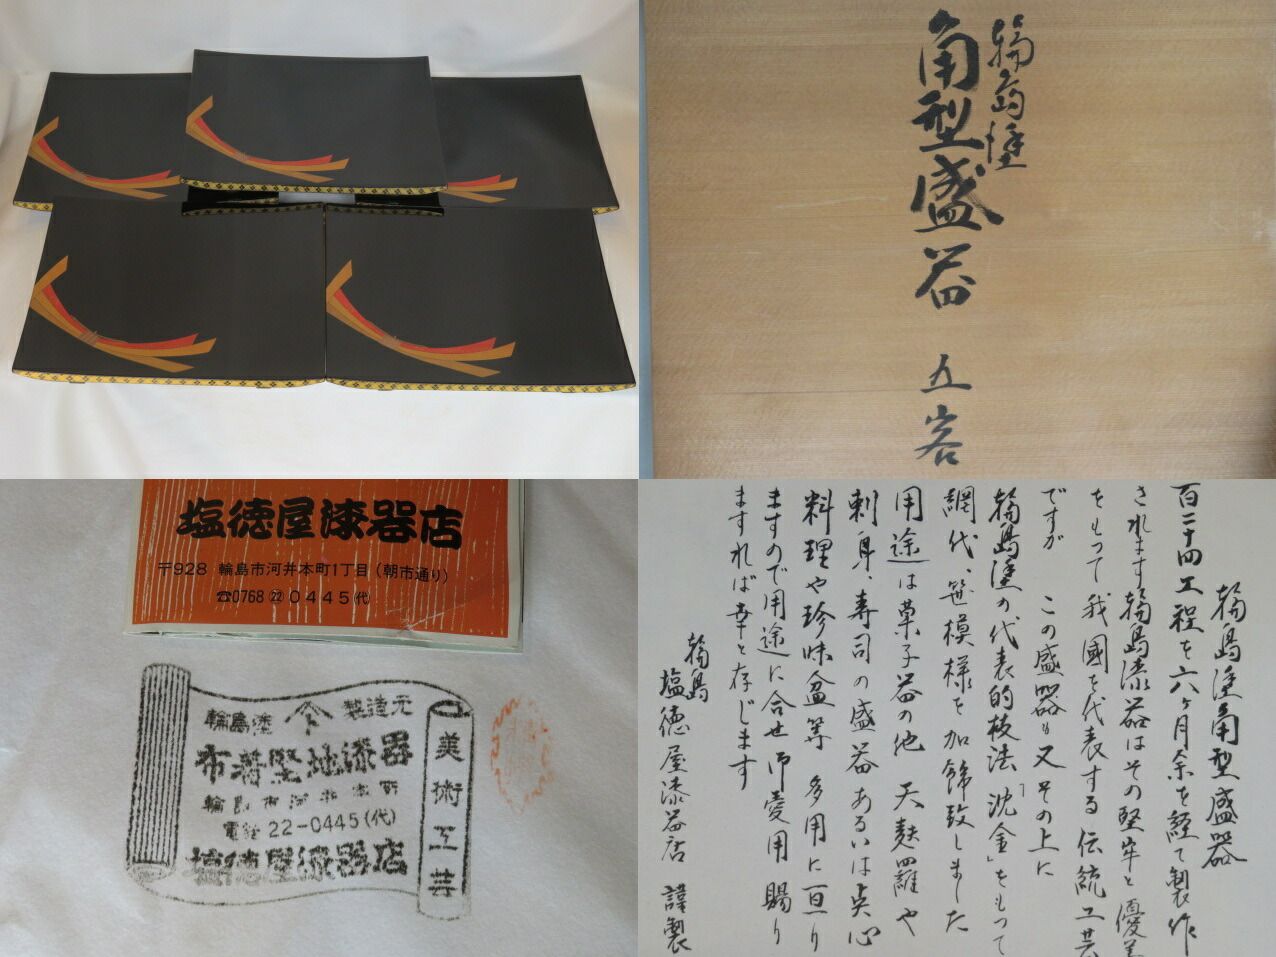 輪島塗
角型盛器　五客
塩徳屋漆器店
〒928 輪島市河井本町1丁目（朝市通り）
☎0768㉒0445㈹
輪島塗 製造元
布着堅地漆器
輪島市河井本町
電話22-0445（代）
塩徳屋漆器店
美術工芸
輪島塗角型盛器
百二十四工程を六ヶ月余を経て製作
されます輪島漆器はその堅牢と優美
をもって我國を代表する伝統工芸
ですが　この盛器も又その上に
輪島塗の代表的技法「沈金」をもって
網代、笹模様を加飾致しました
用途は菓子器の他　天麩羅や
刺身、寿司の盛器あるいは点心
料理や珍味盆等　多用に亘り
ますので用途に合せ御愛用賜り
ますれば幸と存じます
輪島
塩徳屋漆器店　謹製